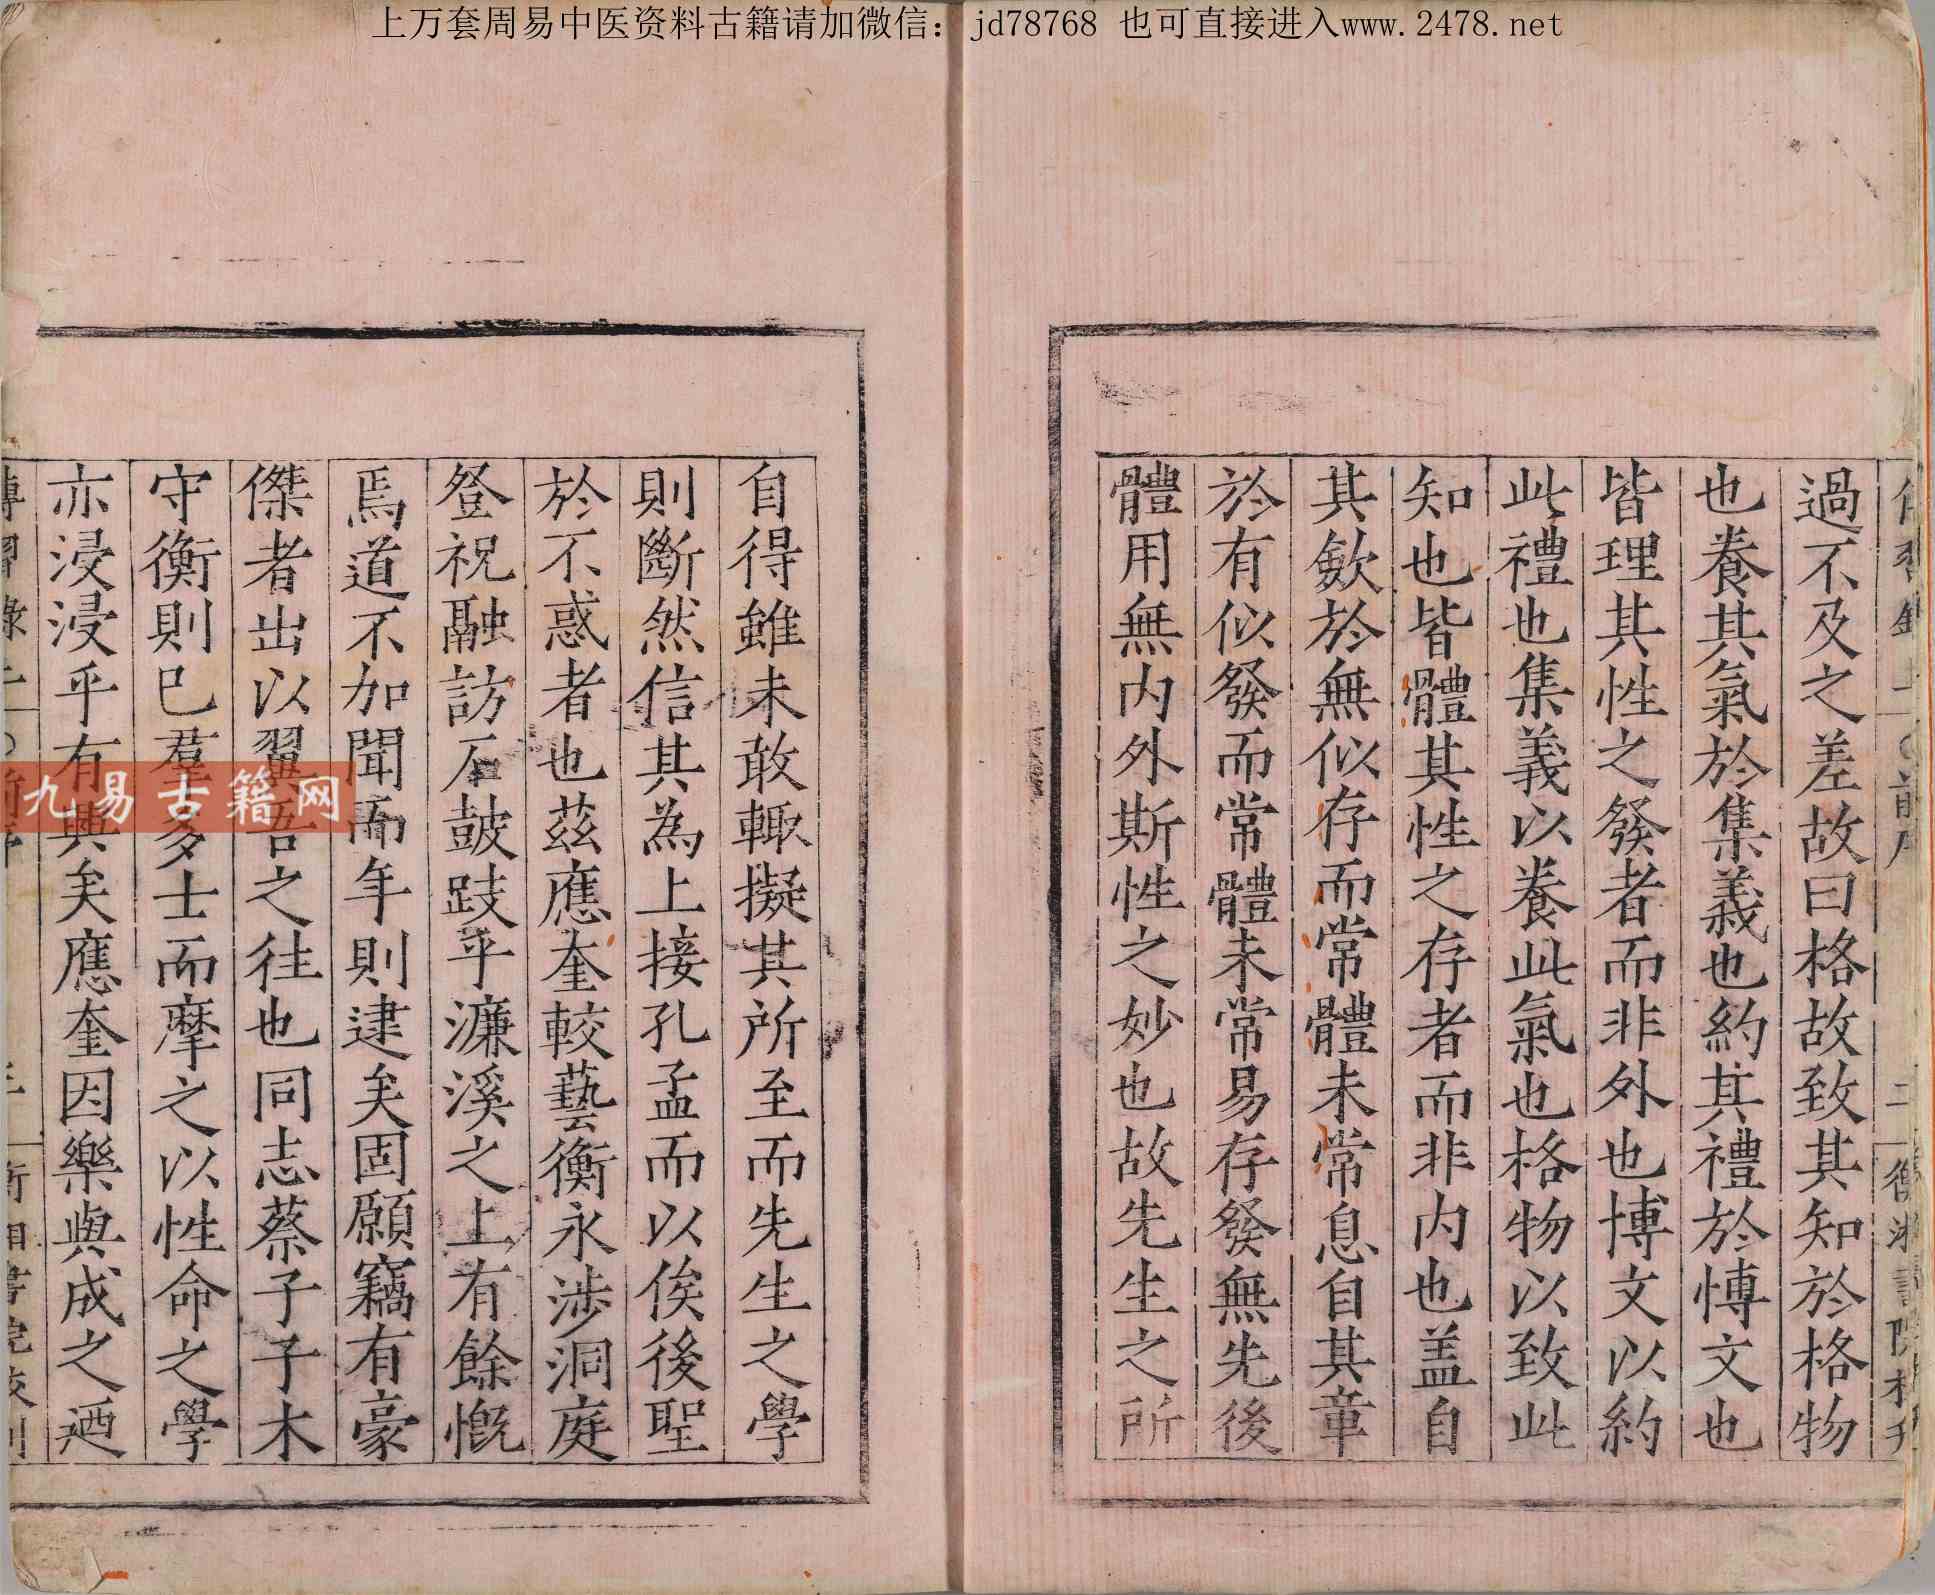 上万套周易中医资料古籍请加微信：jd78768 也可直接进入www.2478.net
過不及之差故曰格故致其知於格物
也養其氣於集義也約其禮於愽文也
皆理其性之發者而非外也博文以約
此禮也集義以養此氣也格物以致此
知也皆體其性之存者而非内也盖自
其斂於無似存而常體未常息自其章
於有似發而常體未常易存發無先後
體用無内外斯性之妙也故先生之所
自得雖未敢輙擬其所至而先生之學
則斷然信其為上接孔孟而以俟後聖
於不惑者也茲應奎較藝衡永涉洞庭
登祝融訪石鼓跂乎濂溪之上有餘慨
焉道不加聞而年則逮矣固願竊有豪
傑者出以翼吾之往也同志蔡子子木
守衡則已羣多士而摩之以性命之學
亦浸浸乎有興矣應奎因樂與成之廼
九易古籍网